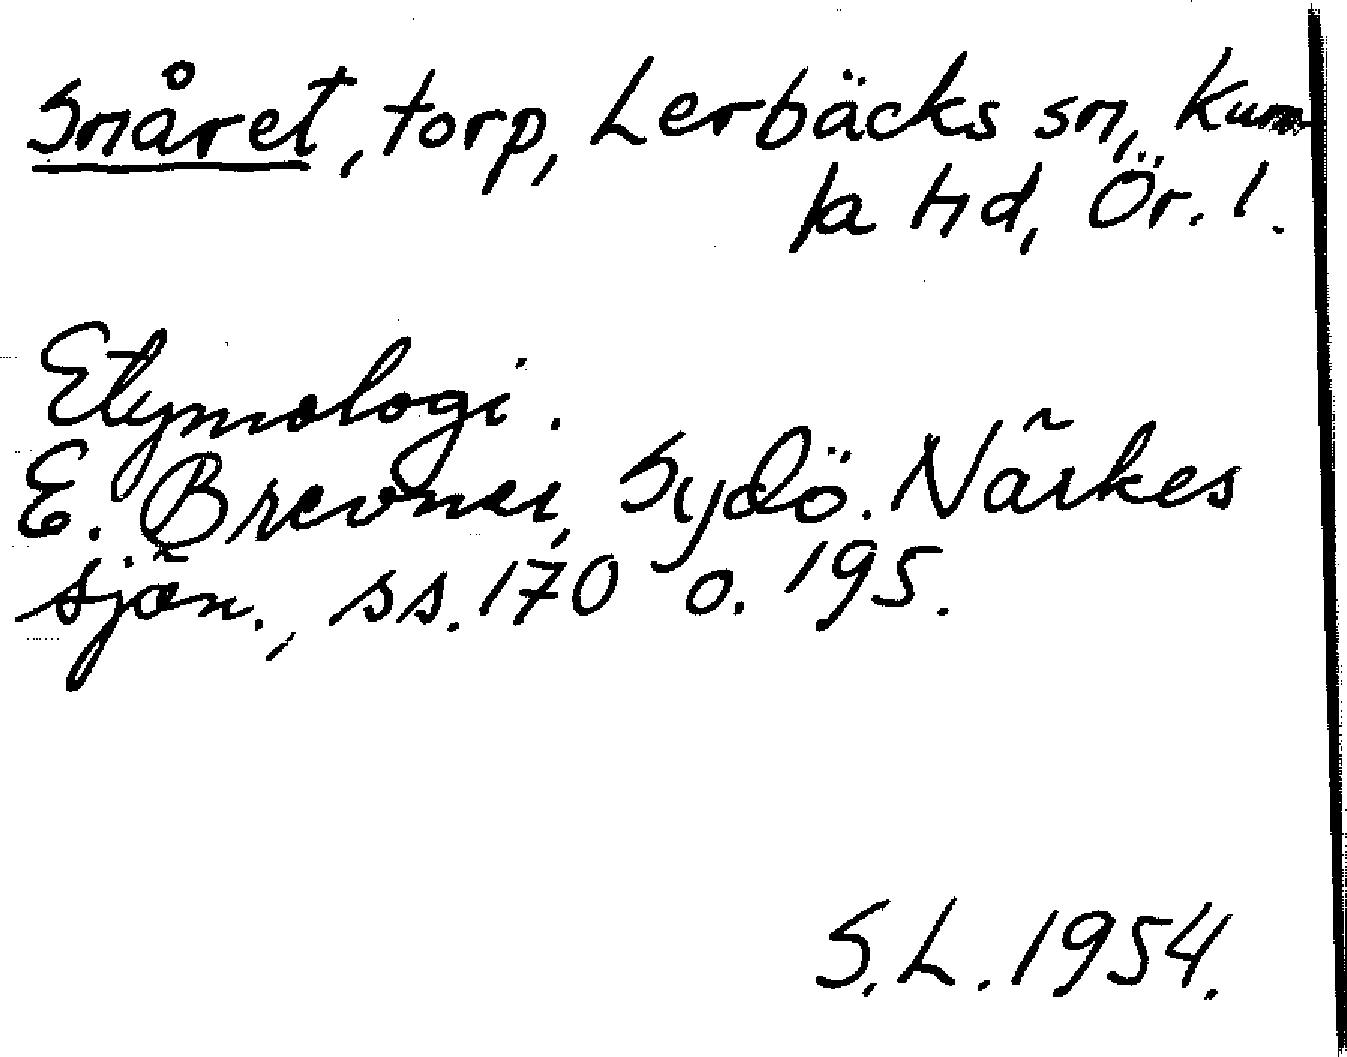 Snåret, torp, Lerbäcks sn, Kum
la hd, Ör. l.
Etymologi.
E. Brevner, Sydö. Närkes
sjön., ss. 170 o. 195.
S.L. 1954.